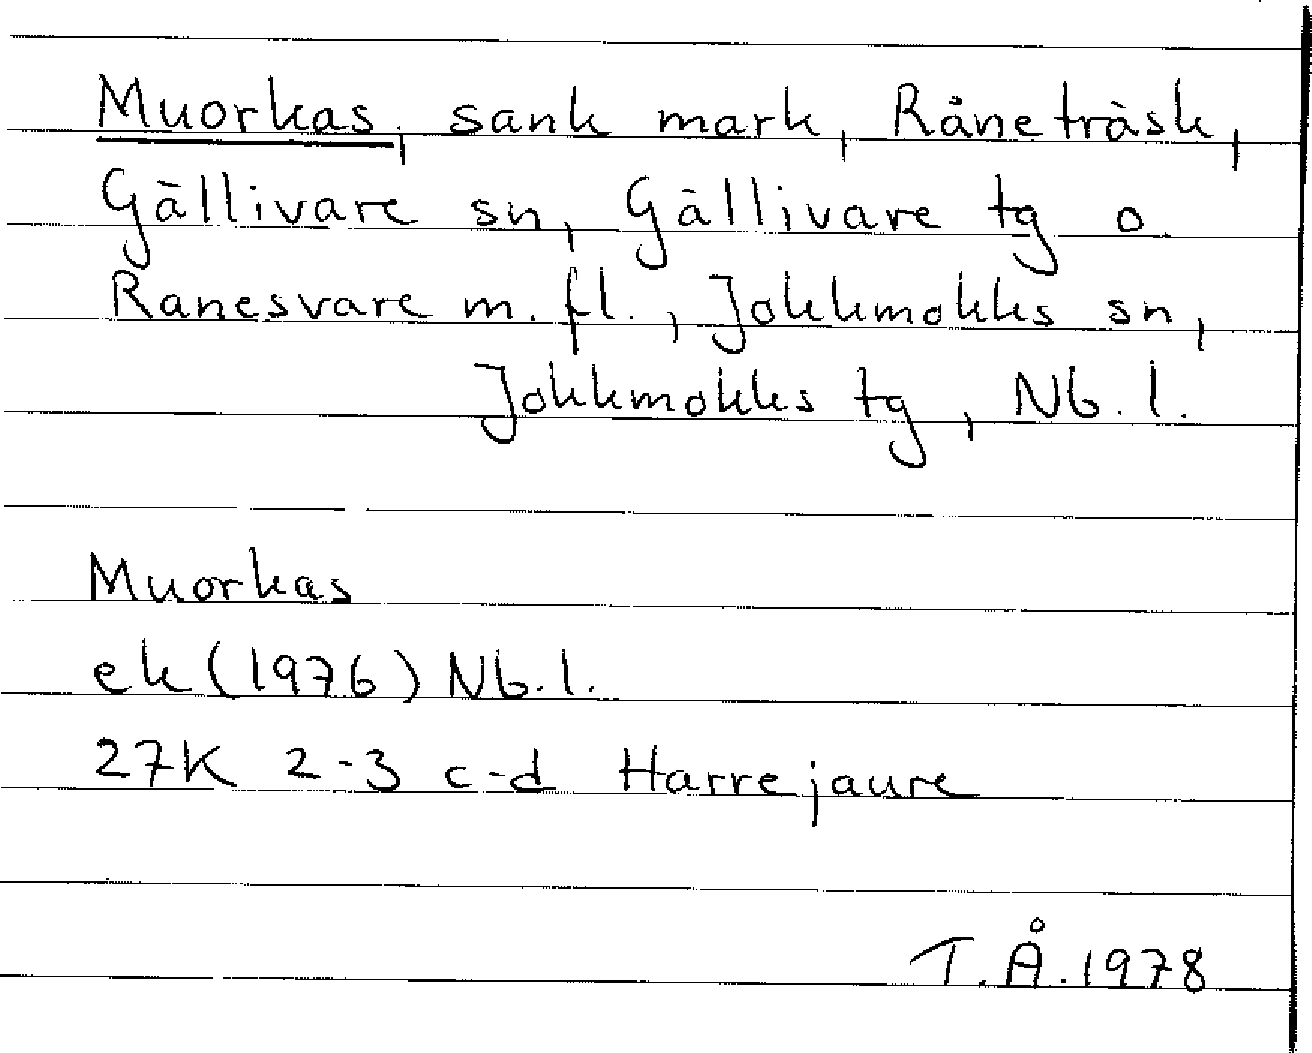 Muorkas, sank mark, Råneträsk,
Gällivare sn, Gällivare tg o
Ranesvare m.fl., Jokkmokks sn,
Jokkmokks tg, Nb.l.
Muorkas
ek (1976) Nb.l.
27K 2-3 c-d Harrejaure
T.Å. 1978